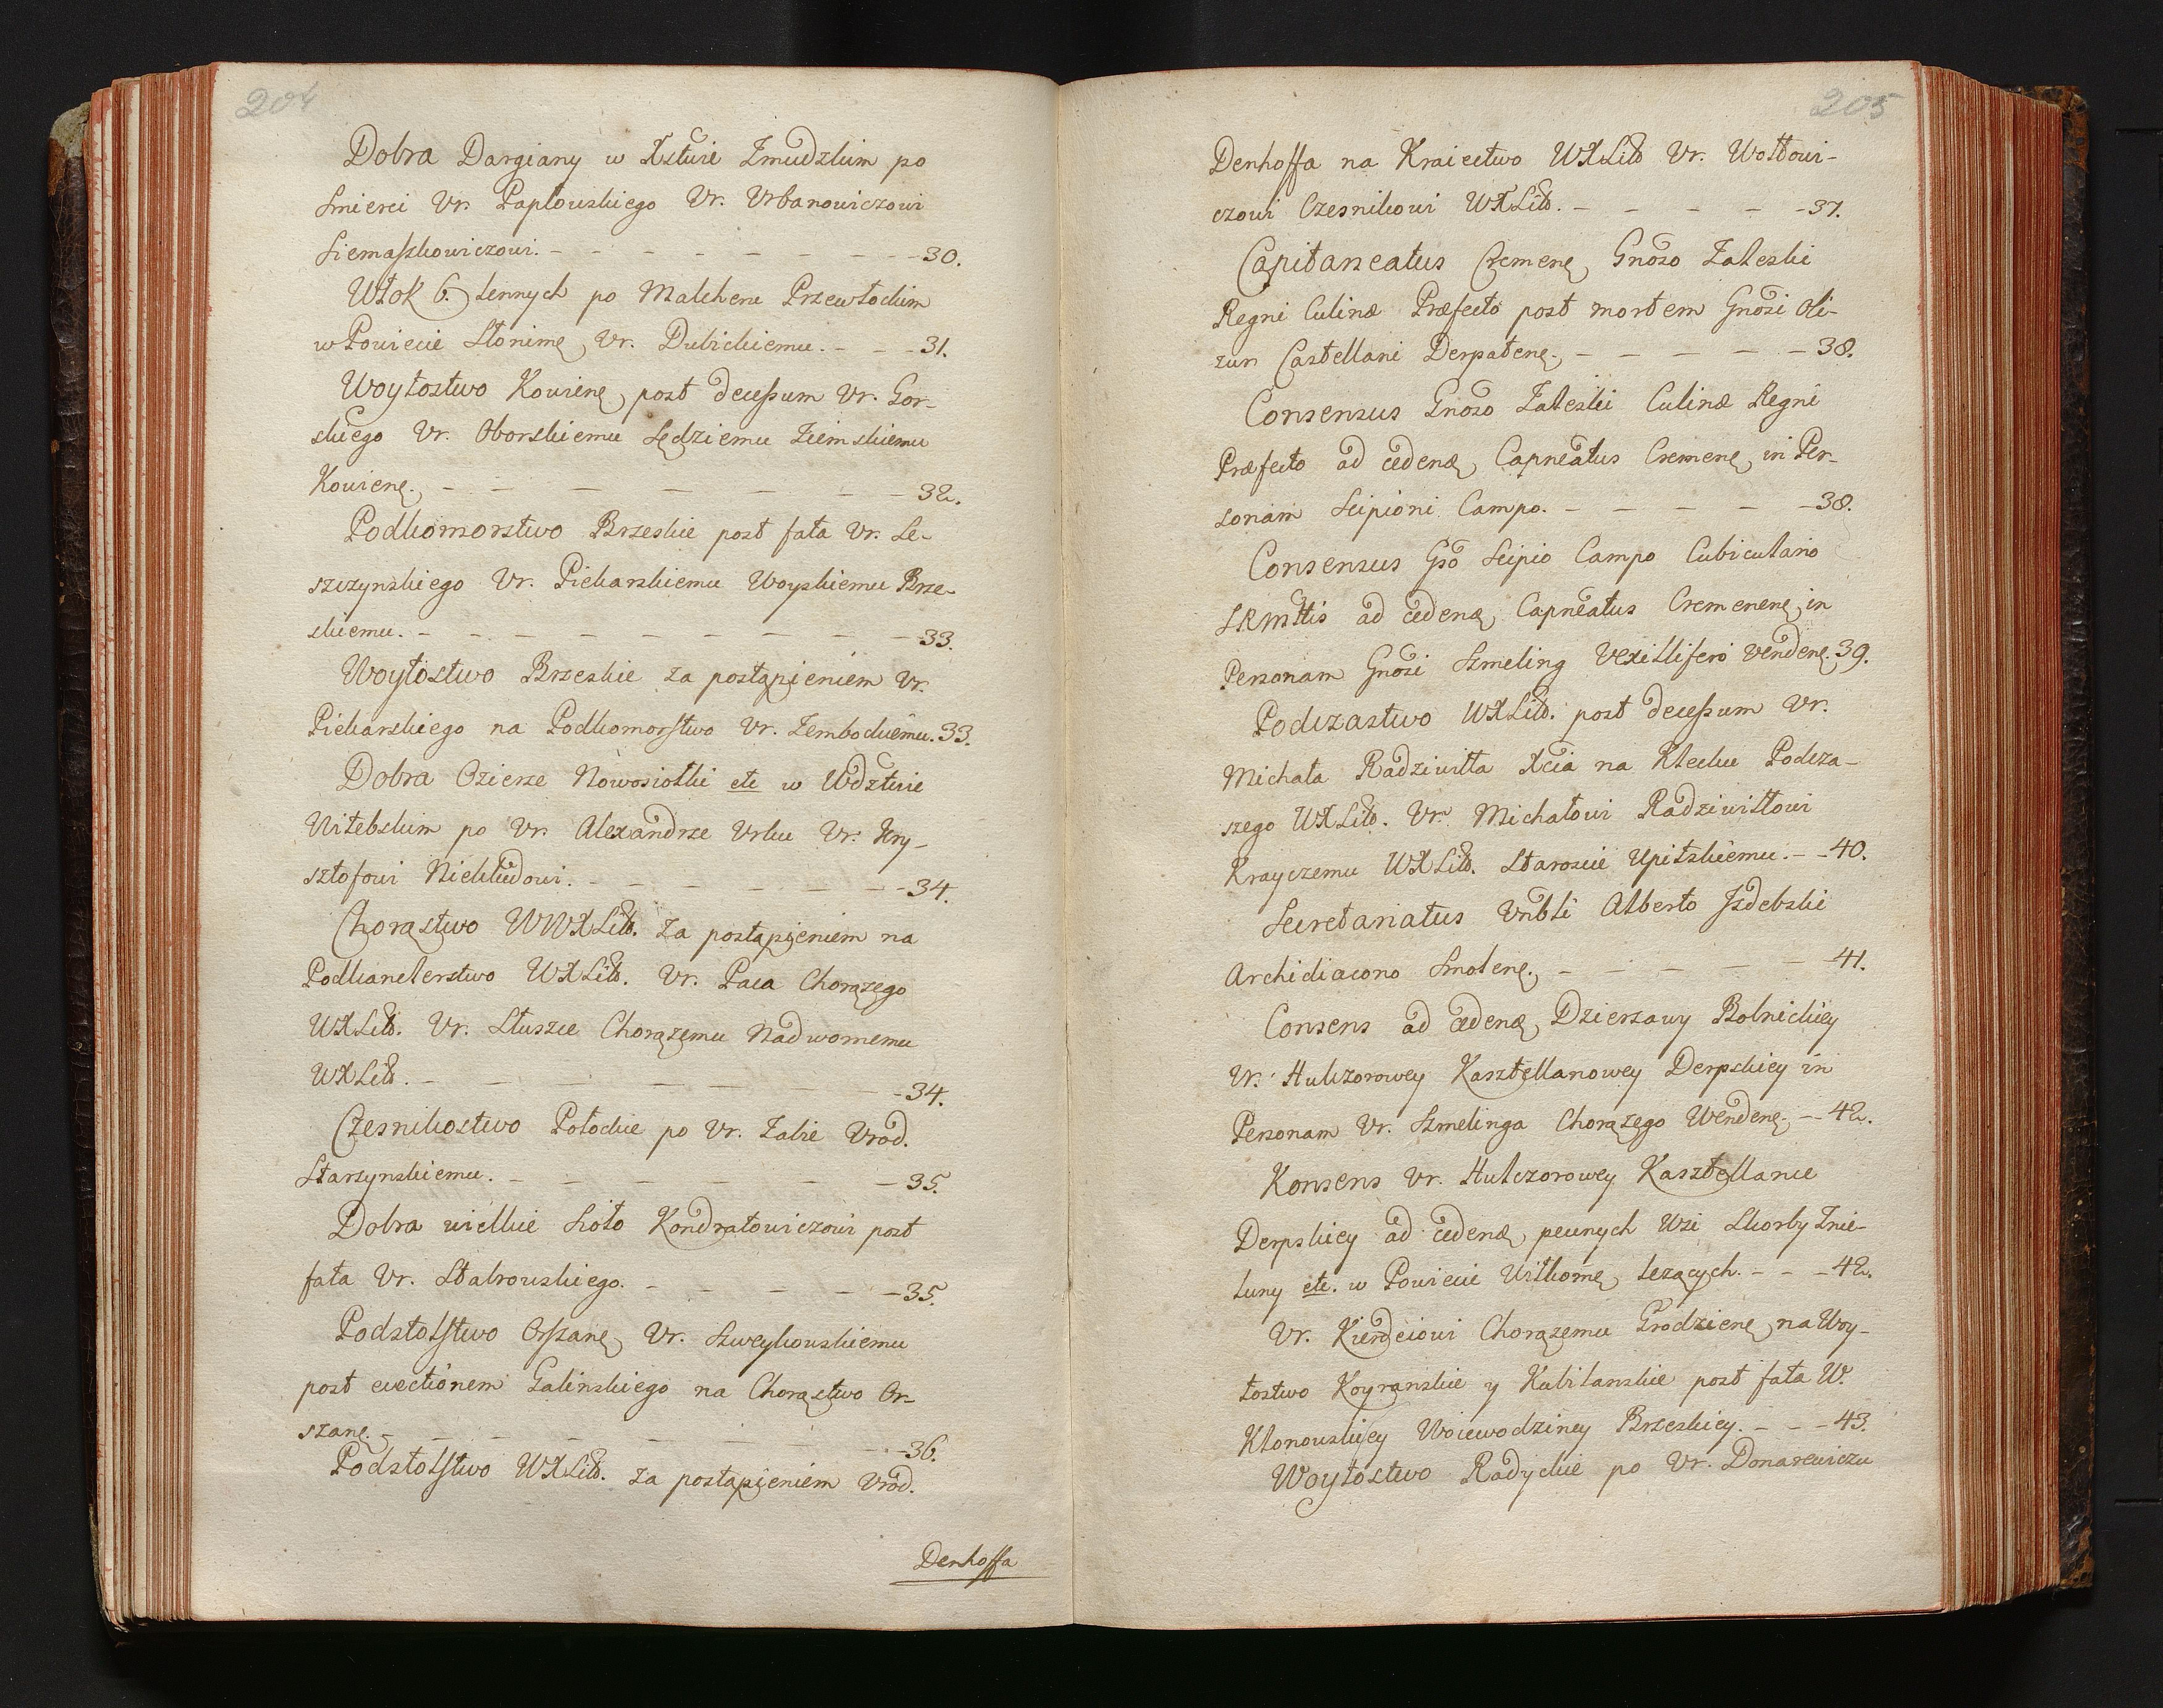 204
Dobra Dargiany w Xstwie Zmudzkim po
Smierci Vr. Paplowskiego Vr. Vrbanowiczowi
Siemaszkowiczowi. - - - - - - - - 30.
Włok 6. lennych po Malcheru Przewłockim
w Powiecie Słonimę, Vr. Dubickiemu. - - - 31.
Woytostwo Kowienę, post decessum Vr. Gor-
skiego Vr. Oborskiemu Sędziemu Ziemskiemu
Kowienę. - - - - - - - 32.
Podkomorstwo Brzeskie post fata Vr. Le-
szczynskiego Vr. Piekarskiemu Woyskiemu Brze-
skiemu. - - - - - - - - - 33.
Woytostwo Brzeskie za postąpieniem Vr.
Piekarskiego na Podkomorstwo Vr. Zembockiemu. 33.
Dobra Ozierze Nowosiołki etc w Wdztwie
Witebskim po Vr. Alexandrze Vrlu Vr. Kry-
sztofowi Niekłudowi. - - - - - - 34.
Chorąstwo WWXLitt. za postąpieniem na
Podkanclerstwo WXLitt. Vr. Paca Chorązego
WXLitt. Vr. Słuszce Chorązemu Nadwornemu
WXLitt. - - - - - - 34.
Czesnikostwo Połockie po Vr. Zabie Vrod.
Starzynskiemu. - - - - - - 35.
Dobra wielkie Koto Kondratowiczowi post
fata Vr. Stabrowskiego. - - - - - 35.
Podstolstwo Orszanę, Vr. Szweykowskiemu
post evectionem Galinskiego na Chorąstwo Or-
szanę. - - - - - - - 36.
Podstolstwo WXLitt. za postąpieniem Vrod.
Denhoffa
205
Denhoffa na Kraiectwo WXLitt Vr. Wołłowi-
czowi Czesnikowi WXLitt. - - - - - 37.
Capitaneatus Cremenę, Gnoso Zaleski
Regni Culinæ Præfecto post mortem Gnosi Oli-
zar Castellani Derpatenę. - - - - - 38.
Consensus Gnoso Zaleski Culinæ Regni
Præfecto ad cedenæ, Capneatus Cremenę, in Per-
sonam Scipioni Campo. - - - - - 38.
Consensus Gso Scipio Campo Cubiculario
SRMttis ad cedenæ, Capneatus Cremenenę, in
Personam Gnosi Szmeling Vexilliferi Vendenę. 39.
Podczastwo WXLitt. post decessum Vr.
Michała Radziwiłła Xcia na Klecku Podcza-
szego WXLitt. Vr. Michałowi Radziwiłłowi
Krayczemu WXLitt. Staroscie Upitskiemu. - - 40.
Secretariatus Vnbli Alberto Izdebski
Archidiacono Smolenę. - - - - - 41.
Consens ad cedenæ, Dzierzawy Bolnickiey
Vr. Hulczorowey Kasztellanowey Derpskiey in
Personam Vr. Szmelinga Chorązego Wendenę, - - 42.
Konsens Vr. Hulczorowey Kasztellance
Derpskiey ad cedenæ, pewnych Wsi Skorby Znie-
luny etc. w Powiecie Wiłkomę, lezących. - - - 42.
Vr. Kierdeiowi Chorązemu Grodzienę, na Woy-
tostwo Koyranskie y Kubilanskie post fata W.
Klonowskiey Woiewodziney Brzeskiey. - - - 43.
Woytostwo Radyckie po Vr. Donarewiczu